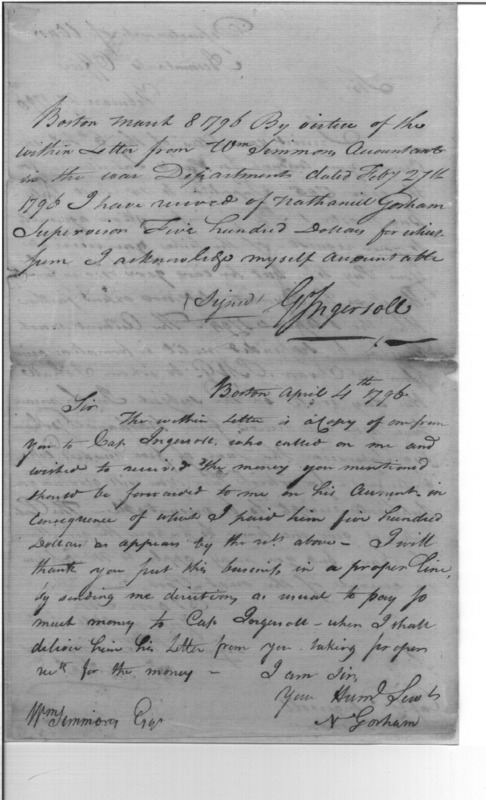 Boston March 8 1796 By virtue of the
within Letter from Wm Simmons Accountant
in the war Department dated Feby 27th
1796 I have received of Nathaniel Gorham
Supervisor Five hundred Dollars for which
sum I acknowledge myself Accountable
(Signed) G Ingersoll
Boston April 4th 1796
Sir
The within letter is a Copy of one from
you to Cap Ingersoll, who called on me and
wished to received the money you mentioned
should be forwarded to me on his Account in
Consequence of which I paid him five hundred
Dollars as appears by the rect above - I will
thank you put this business in a proper line,
by sending me directions as usual to pay so
much money to Cap Ingersoll - when I shall
deliver him his Letter from you taking proper
rect for the money - I am Sir,
Your Huml Servt
Wm Simmons Esqr N Gorham